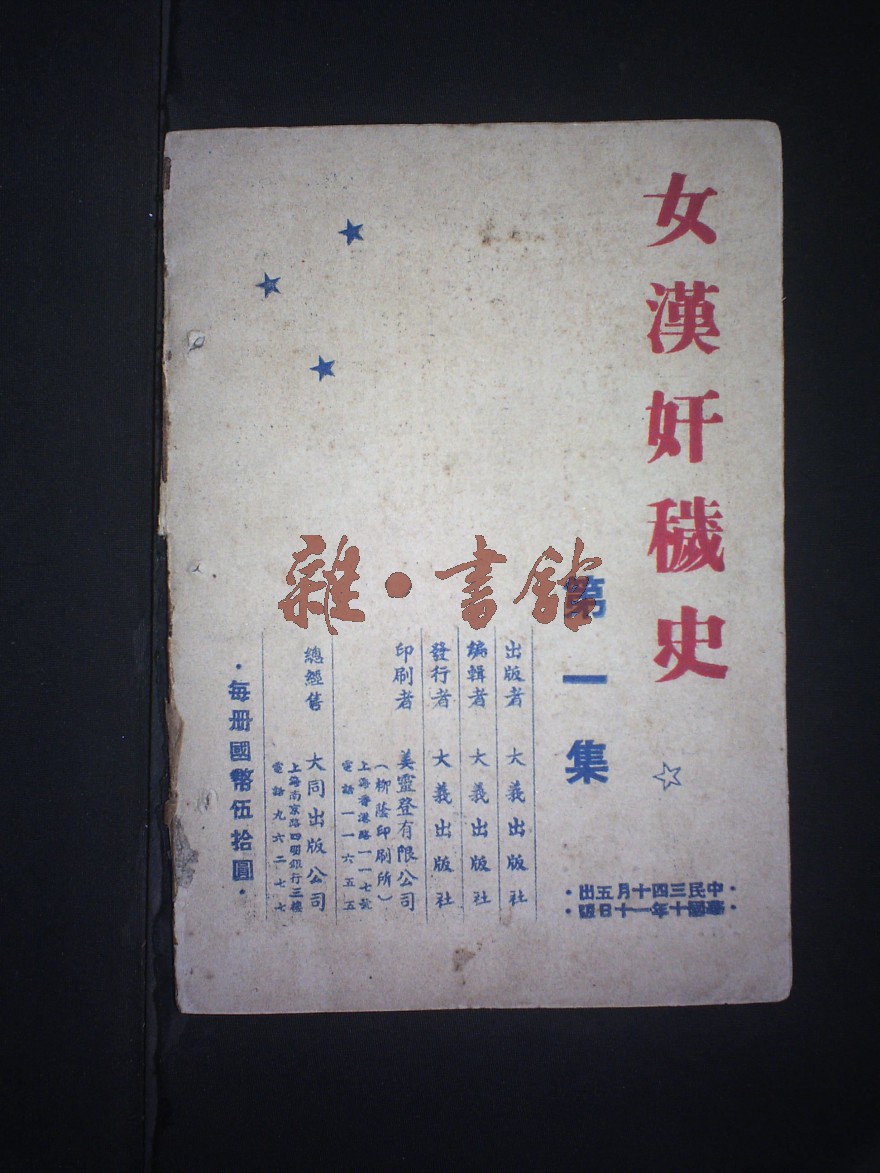 女漢奸穢史
第一集
·中華民國三十四年十一月十五日出版·
出版者 大義出版社
編輯者 大義出版社
發行者 大義出版社
印刷者 美靈登有限公司
（柳蔭印刷所）
上海香港路一一七號
電話一一六五五
總經售 大同出版公司
上海南京路四明銀行三樓
電話九六二七七
·每册國幣伍拾圓·
雜·書館